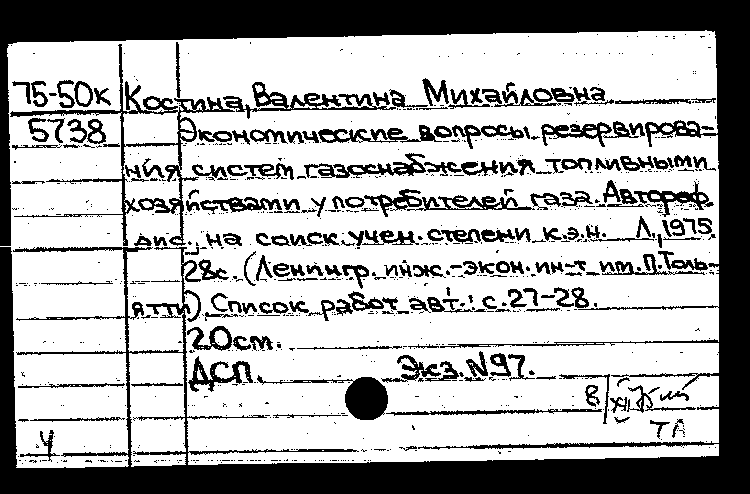 75-50к Костина, Валентина Михайловна
5738 Экономические вопросы резервирова=
ния систем газоснабжения топливными
хозяйствами у потребителей газа. Автореф.
дис., на соиск. учен. степени к.э.н. Л., 1975.
28с. (Ленингр. инж.-экон. ин-т им. П. Толь-
ятти). Список работ авт.: с. 27-28.
20см.
ДСП. Экз. N97.
8/XII
ТА
Ч